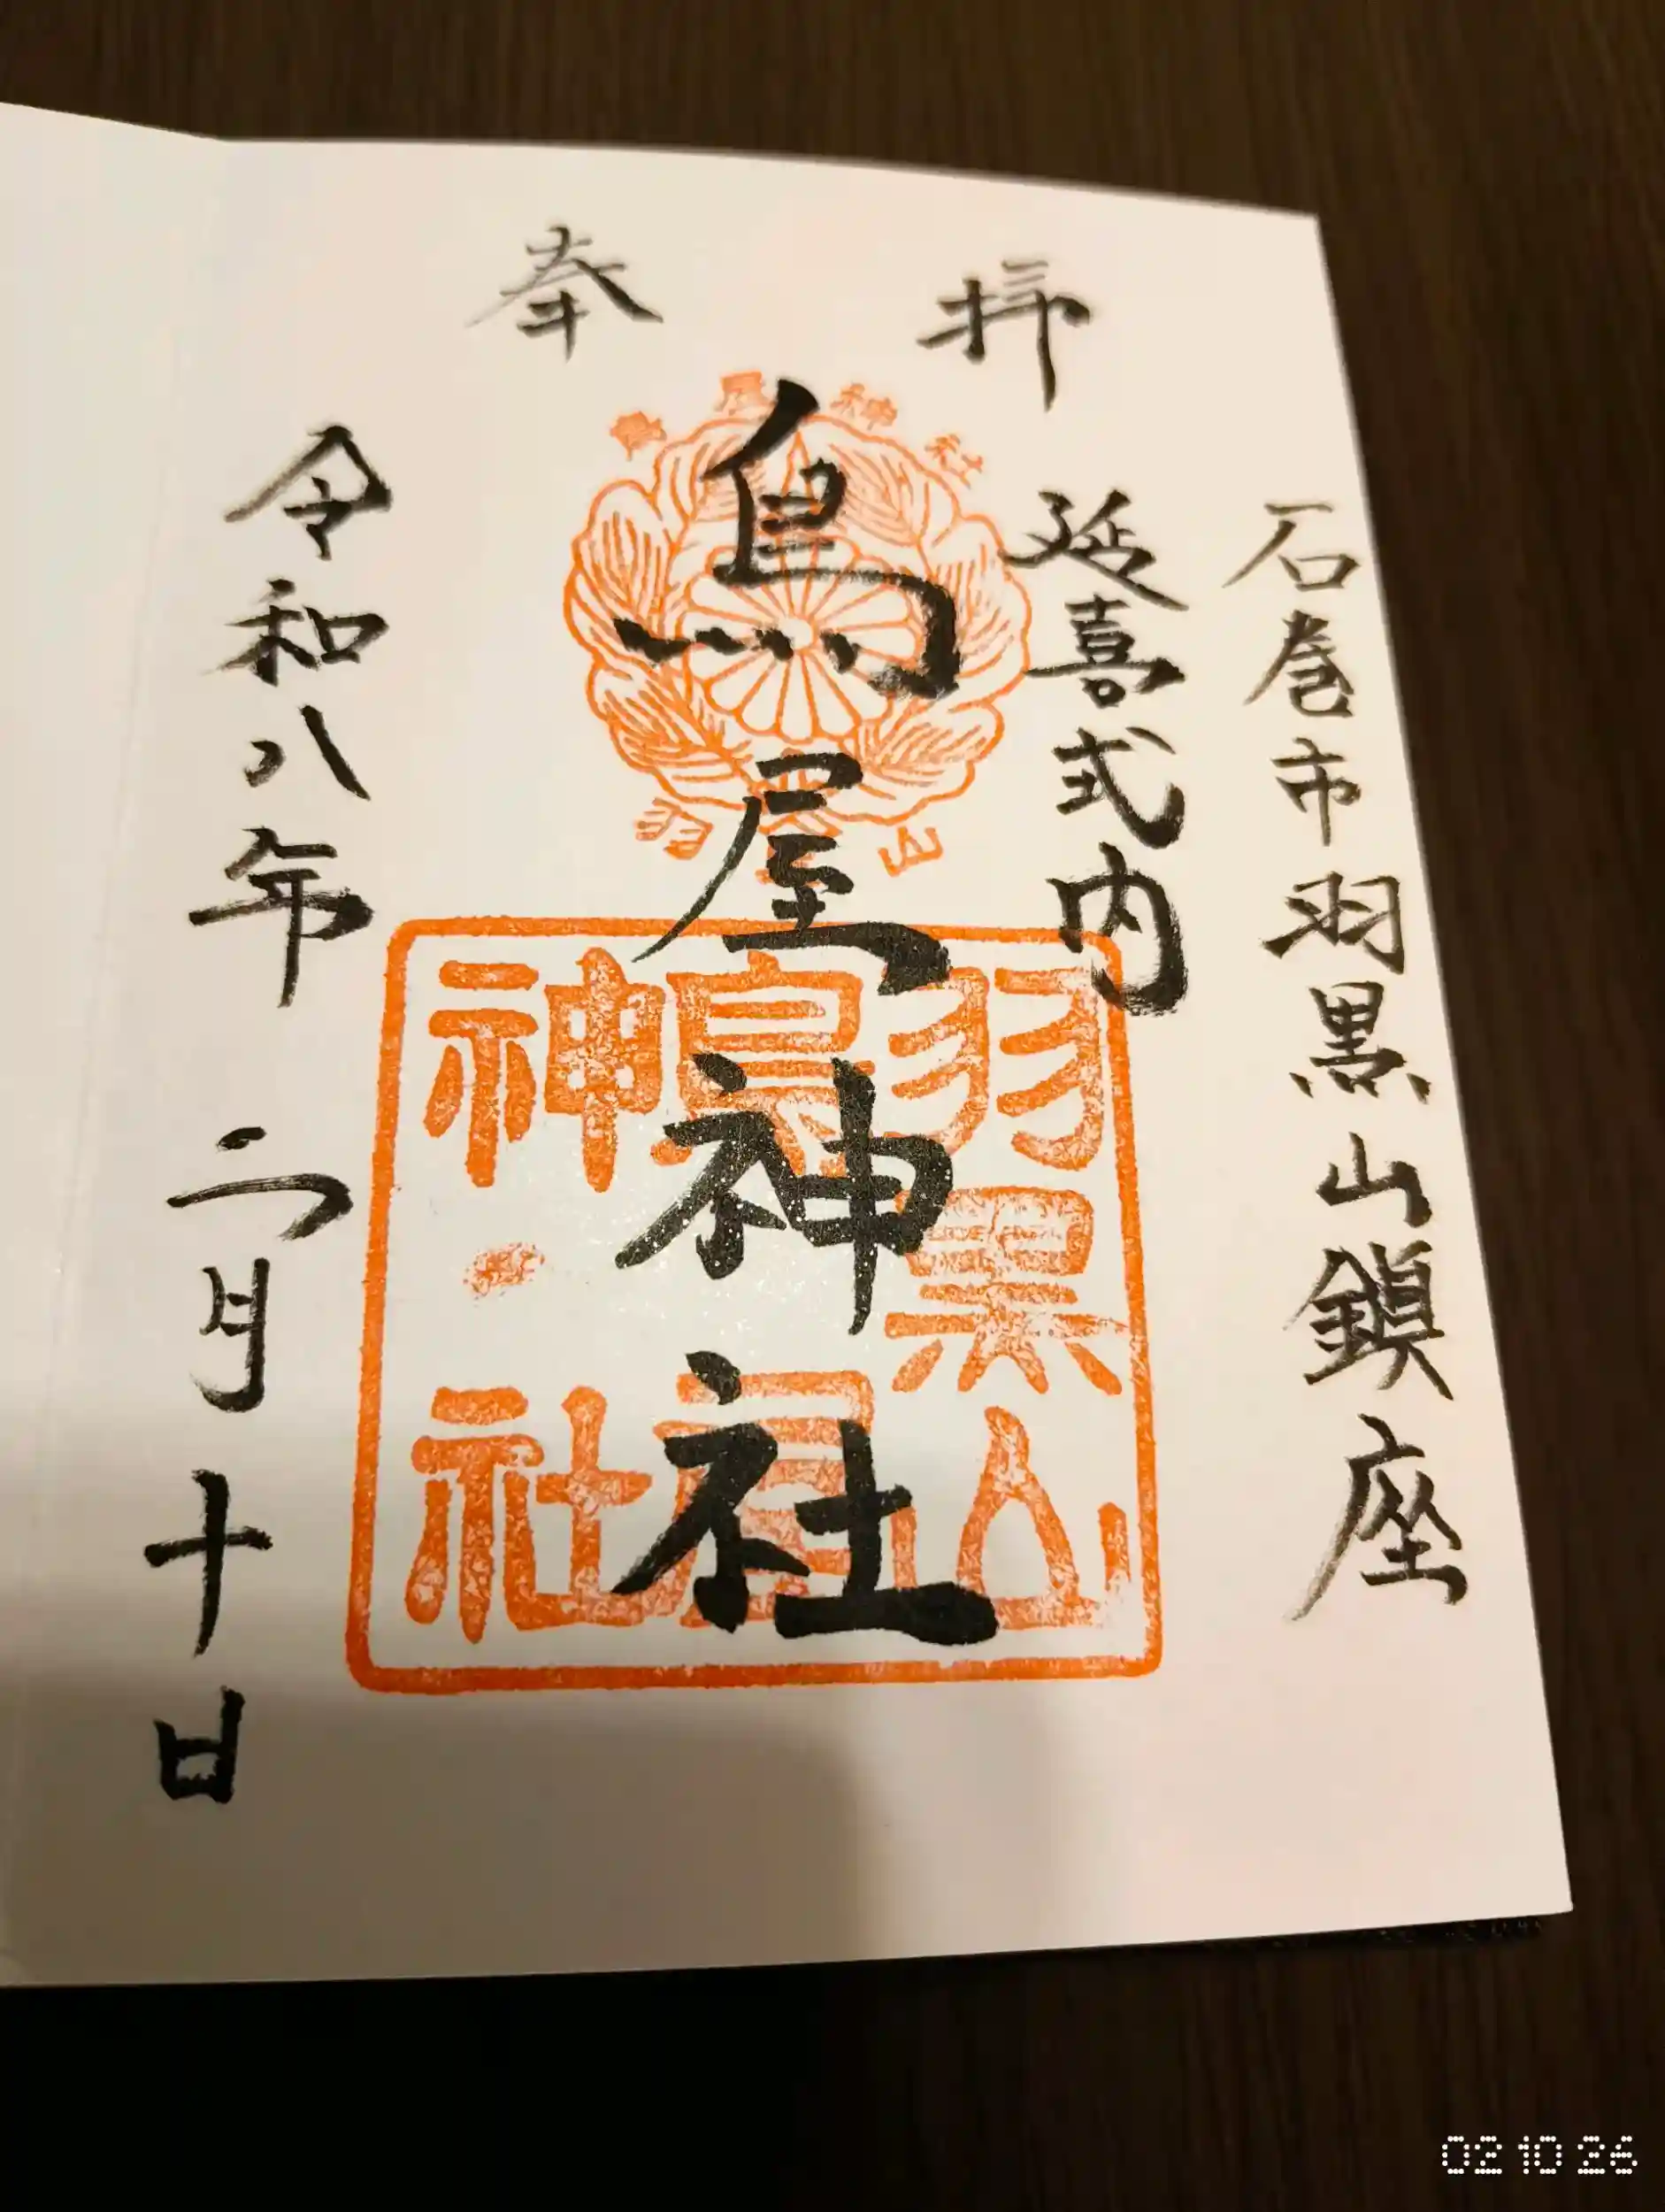 奉拝
石巻市羽黒山鎮座
延喜式内
鳥屋神社
令和八年 二月十日
鳥屋神社
羽黒山
羽黒山
鳥屋
神社
02 10 26